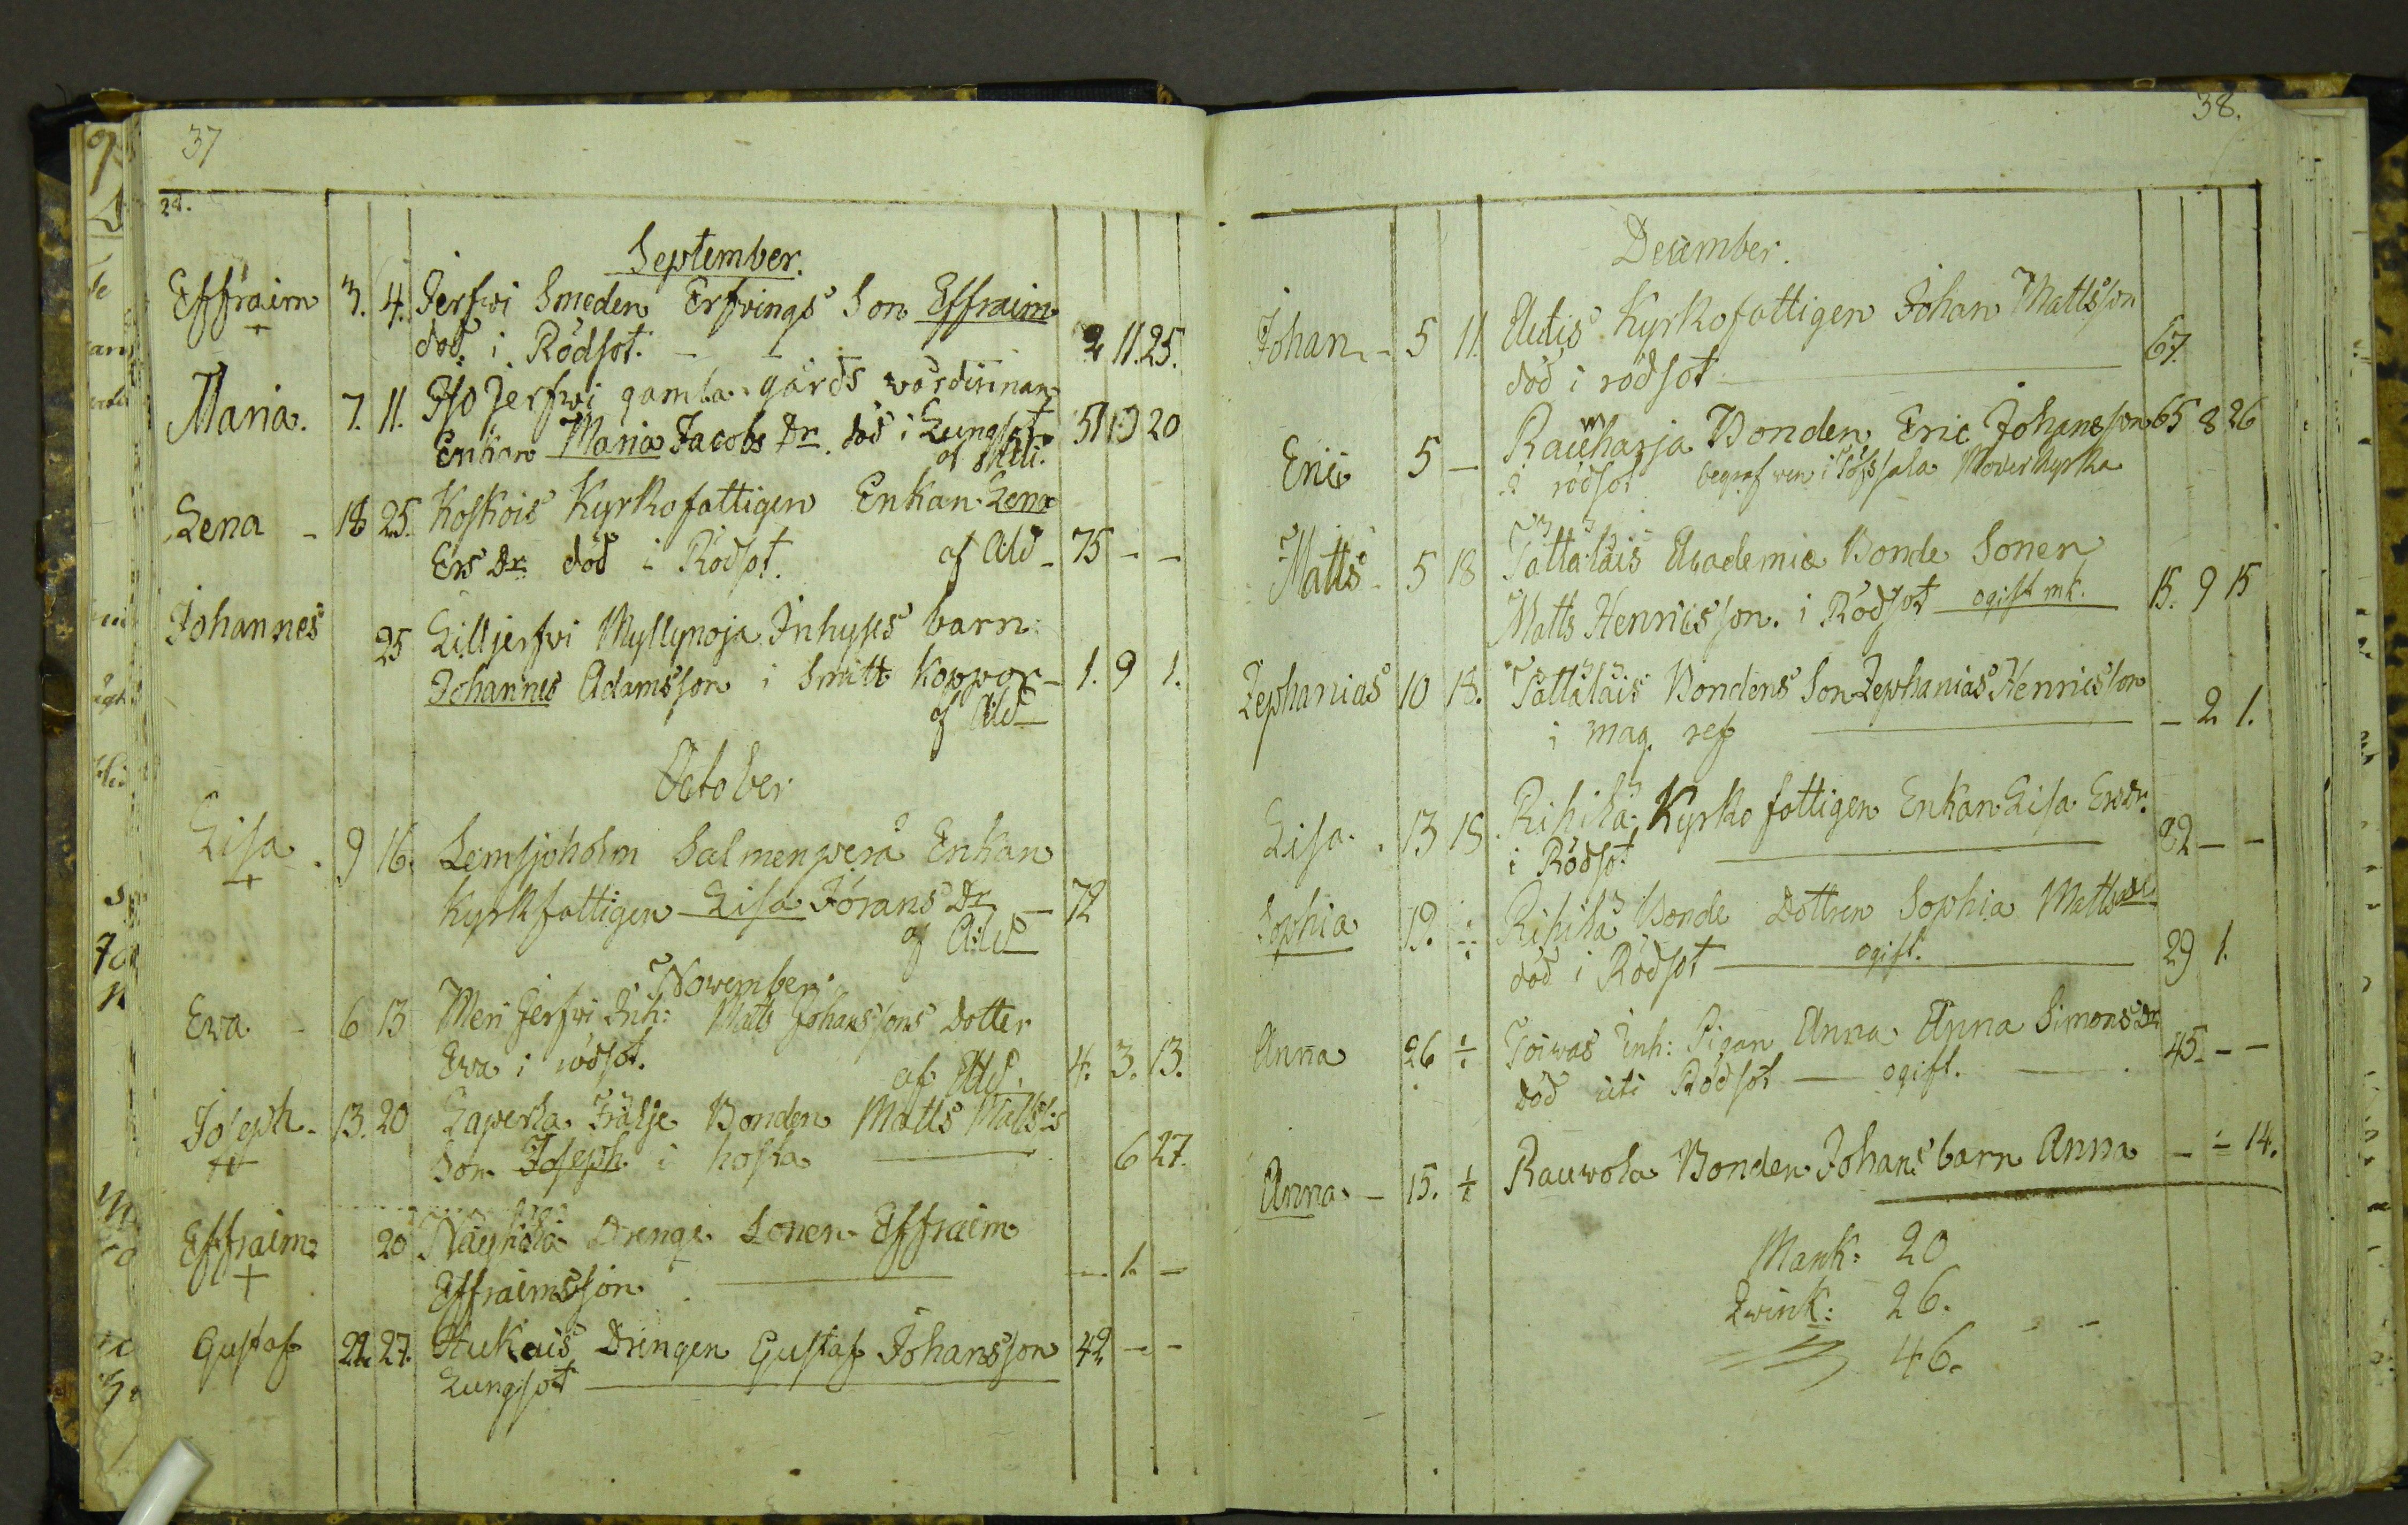 37
24.
September.
Effraim 3. 4. Jerfwi Smeden Erfvings Son Effraim
död i Rödsot. - - 2 11. 25.
Maria. 7. 11. Iso Jerfwi gamla gårds wärdinnan
Enkan Maria Jacobs Dr. död i Lungsot 51 10 20
af åld.
Lena - 18 25. Koskois Kyrkofattigen Enkan Lena
Ers Dr död i Rödsot. af Åld - 75 - -
Johannes 25 Lilljerfwi Myllynoja Inhyses barn
Johannes Adamsson i Smitt Koppor - 1. 9 1.
af Åld
October
Lisa. 9 16. Lemsjöholm Salmenperä Enkan
Kyrkfattigen Lisa Jörans Dr - 72
af Åld
November
Eva - 6 13 Meri Jerfwi Inh: Matts Johanssons dotter
Eva i rödsot. 4. 3. 13.
af Åld.
Joseph - 13. 20 Laperla Frälse Bonden Matts Matts:s
Son Joseph i hosta 6 27.
Effraim 20 Drengs Sonen Effraim
Effraimsson - 1. -
Gustaf 21. 27. Hukais Drengen Gustaf Johansson 42 - -
Lungsot
38.
December.
Johan - 5 11. Autis Kyrkofattigen Johan Mattsson
död i rödsot 67.
Eric 5 - Rauwharja Bonden Eric Johansson 65 8 26
i rödsot begrafwen i Töfsala Moderkyrka
Matts - 5 18 Tättäläis Academie Bonde Sonen
Matts Henricsson. i Rödsot ogift mk. 15. 9 15
Zephanias 10 18. Tättäläis Bondens Son Zephanias Henricsson
i mag. ref - 2 1.
Lisa. 13 18. Rihikä Kyrko fattigen Enkan Lisa Ersdr.
i Rödsot 82 - -
Sophia 19. ÷ Rihikä Bonde Dottren Sophia Mattsdr
död i Rödsot ogift. 29 1.
Anna 26 ÷ Toiwas Inh: Pigan Anna Anna Simonsdr
död uti Rödsot - ogift. 45. - -
Anna - 15. ÷ Rauwola Bonden Johans barn Anna - - 14.
Mank: 20
Qwink: 26.
46.